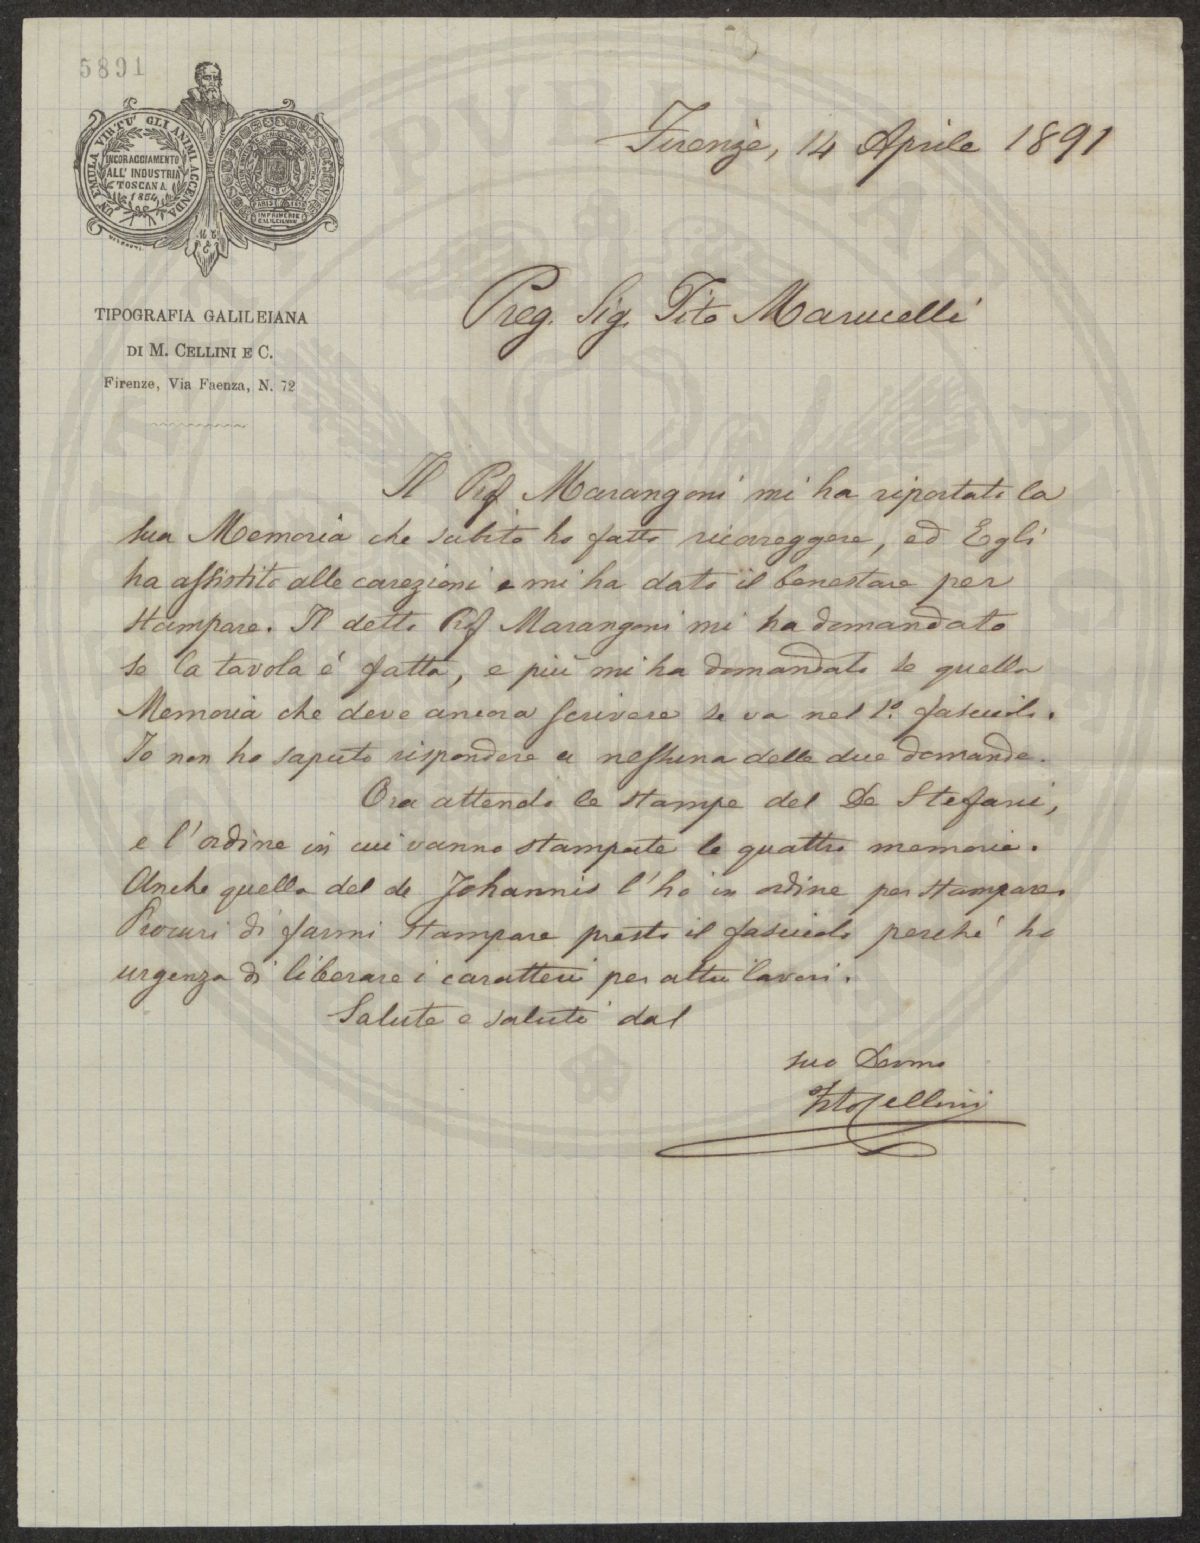 5891
UN EMULA VIRTU' GLI ANIMI ACCENDA
INCORAGGIAMENTO
ALL' INDUSTRIA
TOSCANA
1854
TIPOGRAFIA GALILEIANA
DI M. CELLINI E C.
Firenze, Via Faenza, N. 72
Firenze, 14 Aprile 1891
Preg. Sig. Tito Marucelli
Il Prof Marangoni mi ha riportato la
sua Memoria che subito ho fatto ricoreggere, ed Egli
ha assistito alle carezioni e mi ha dato il benestare per
stampare. Il detto Prof Marangoni mi ha domandato
se la tavola é fatta, e più mi ha domandato se quella
Memoria che deve ancora scrivere se va nel 1º. fascicolo.
Io non ho saputo rispondere a nessuna delle due domande.
Ora attendo le stampe del De Stefani,
e l'ordine in cui vanno stampate le quattro memorie.
Anche quella del de Johannis l'ho in ordine per stampare.
Procuri di farmi stampare presto il fascicolo perché ho
urgenza di liberare i caratteri per altri lavori.
Salute e saluti dal
suo Devmo
Cellini